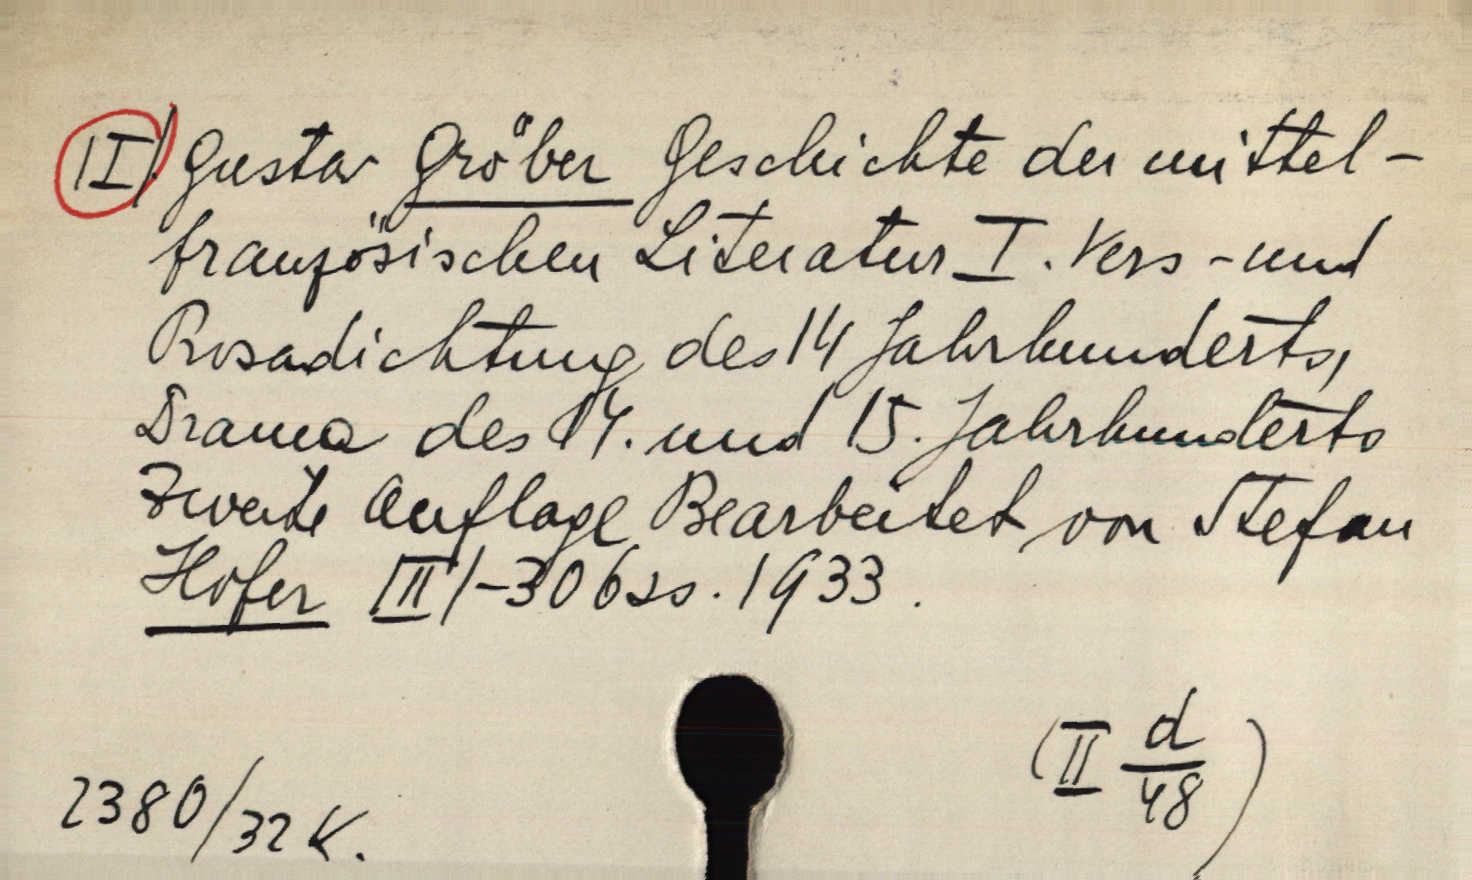 |I/. Gustav Gröber Geschichte der mittel-
französischen Literatur I. Vers-und
Prosadichtung des 14 Jahrhunderts,
Drama des 14. und 15. Jahrhunderts
Zweite Auflage Bearbeitet von Stefan
Hofer |II/-306ss. 1933.
(II d/48)
2380/32 K.